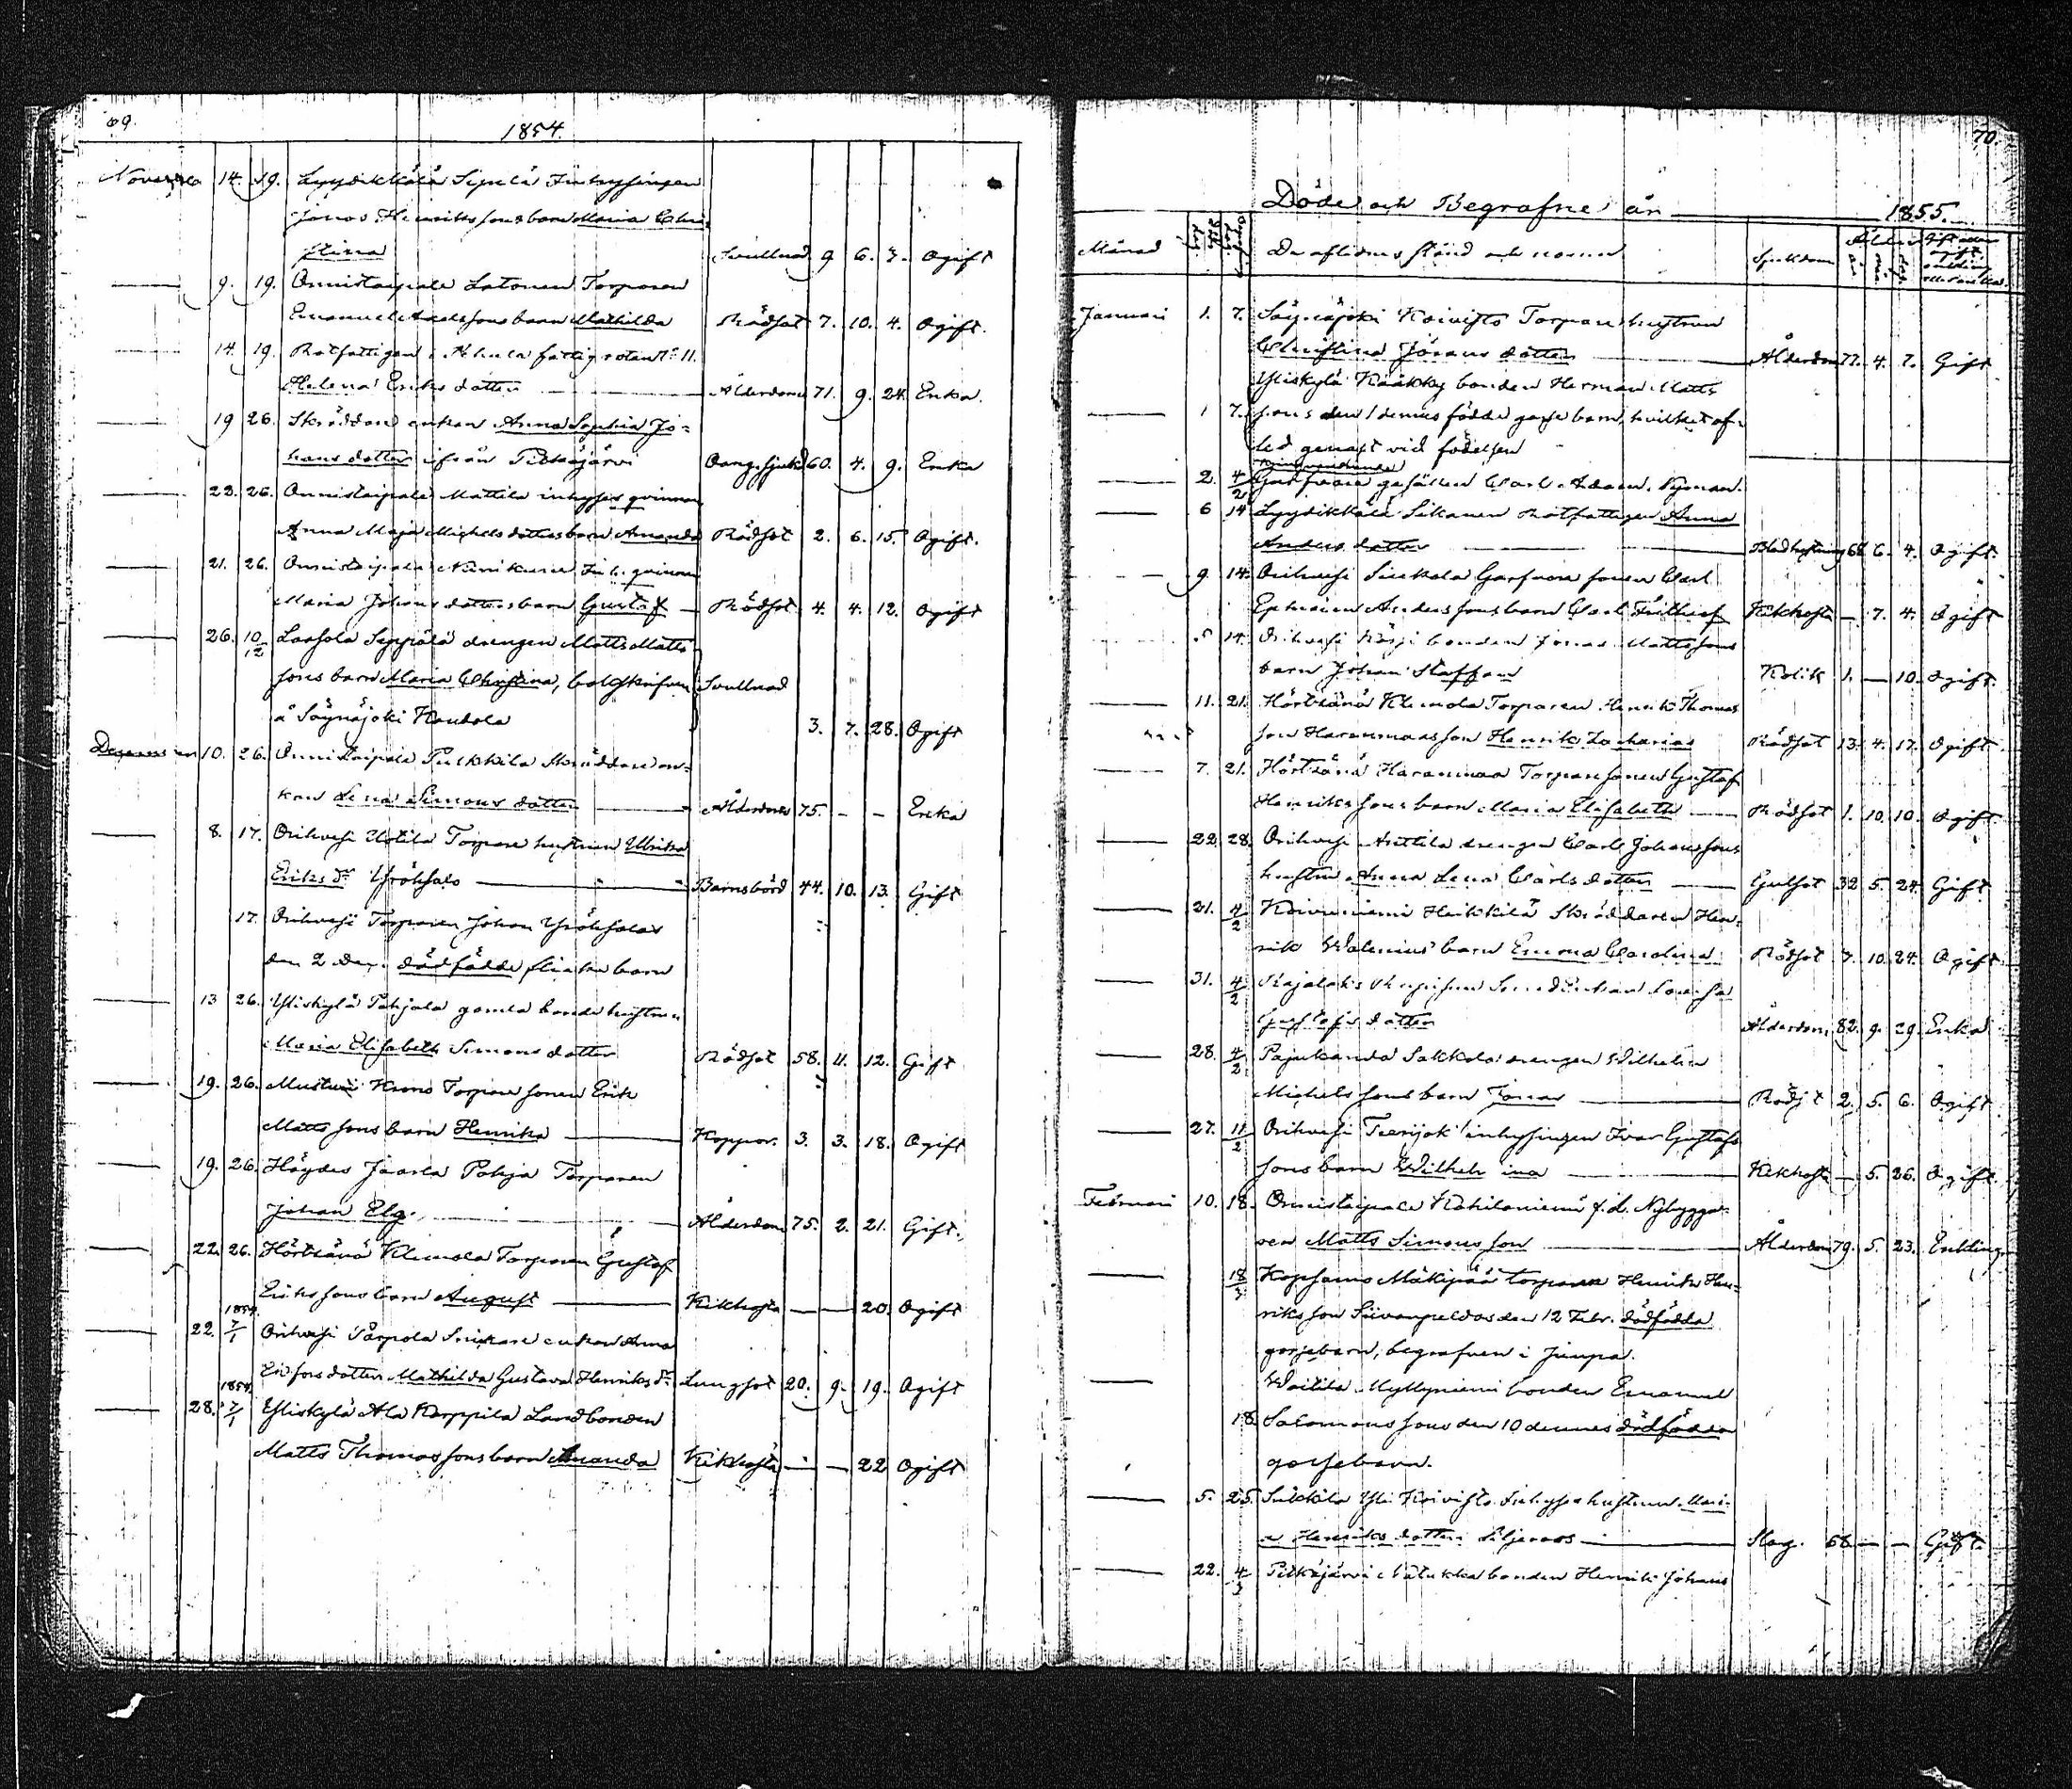 69.
1854.
November 14. 19. Lyydikkälä Sipilä Inhysingen
Jonas Henrikssons barn Maria Chri-
stina Svullnad 9 6. 7. Ogift
9. 19. Onnistaipale Latonen Torparen
Emanuel barn Mathilda Rödsot 7. 10. 4. Ogift.
14. 19. Rotfattigen i fattigroten N:o 11.
Helena Eriks dotter Ålderdom 71. 9. 24. Enka.
19 26. Skräddare enkan Anna Sophia Jo-
hans dotter ifrån Pitkäjärvi 60. 4. 9. Enka
23. 26. Onnistaipale Mattila inhyses qvinnan
Anna Maja Michelsdotters barn Amanda Rödsot 2. 6. 15. Ogift.
21. 26. Onnistaipale Inh. qvinnan
Maria Johans dotters barn Gustaf Rödsot 4. 4. 12. Ogift
26. 10/12 Seppälä drengen Matts Matts
sons barn Maria Christina, bolskrifven Svullnad
å Säynäjoki 3. 7. 28. Ogift
December 10. 26. Onnistaipale Pukkila Skräddare en-
kan Lena Simons dotter Ålderdom 75. - - Enka
8. 17. Orihvesi Uotila Torpare hustrun Ulrika
Eriks dr Yrökfalo Barnsbörd 44. 10. 13. Gift
17. Orihvesi Torparen Johan
den 2 Dec. dödfödde flicka barn
13 26. Yliskylä Pohjala gamla bonde hustrun
Maria Elisabeth Simons dotter Rödsot 58. 11. 12. Gift
19. 26. Torpare sonen Erik
Matts sons barn Henrika Koppor. 3. 3. 18. Ogift
19. 26. Jaarla Pohja Torparen
Johan Elg. Ålderdom 75. 2. 21. Gift.
22. 26. Hörtsänä Klemola Torparen Gustaf
Eriks sons barn August Kikhosta — — 20. Ogift
22. 7/1 Orihvesi enkan Anna
dotter Mathilda Gustava Henriks dr Lungsot 20. 9. 19. Ogift
28. 7/1 Yliskylä Ala Karppila Landbonden
Matts Thomassons barn Amanda Kikhosta — — 22 Ogift
70.
Döde och Begrafne år 1855.
Månad De aflidnes stånd och namn Sjukdom Ålder
Januari 1. 7. Säynäjoki Koivisto Torpare hustrun
Christina Jörans dotter Ålderdom 77. 4. 7. Gift
Yliskylä Kääkky bonden Herman Matts
1 7. sons den 1 dennes födde gosse barn, hvilket af-
led genast vid födelsen
2. 4/2 gesällen Carl Adam Nyman.
6 14 Lyydikkälä Sikanen Rotfattigen Anna
Anders dotter 68. 6. 4. Ogift.
9. 14. Orihvesi Garfvare sonen Carl
Ephraim Anders sons barn Carl Frithiof Kikhosta — 7. 4. Ogift
5 14. Orihvesi bonden Jonas Mattssons
barn Johan Staffan Kolik 1. — 10. Ogift.
11. 21. Hörtsänä Klemola Torparen Henrik Thomas
son Haranmaas son Henrik Zacharias Rödsot 13. 4. 17. Ogift
7. 21. Hörtsänä Haranmaa Torpare sonen Gustaf
Henriks sons barn Maria Elisabeth Rödsot 1. 10. 10. Ogift
22. 28. Orihvesi Anttila drengen Carl Johanssons
hustru Anna Lena Carls dotter Gulsot 32 5. 24. Gift
21. 4/2 Koivuniemi Heikkilä Skräddaren Hen-
rik Walenius barn Emma Carolina Rödsot 7. 10. 24. Ogift
31. 4/2 enkan Lovisa
Gustafs dotter Ålderdom 82. 9. 29. Enka
28. 4/2 Pajukanda Sakkola drengen Wilhelm
Michels sons barn Jonas 2. 5. 6. Ogift
27. 11/2 Orihvesi inhysingen Ivar Gustafs
sons barn Wilhelmina Kikhosta — 5. 26. Ogift.
Februari 10. 18. Onnistaipale f.d. Nybygga-
ren Matts Simons son Ålderdom 79. 5. 23. Enkling
18/3 Kopsamo Mäkipää torparen Henrik Hen-
riks son den 12 Febr. dödfödda
gossebarn, begrafven i Juupa.
Waitila Myllyniemi bonden Emanuel
18 Salomons sons den 10 dennes dödfödda
gossebarn.
5. 25. Yli Koivisto Inhyses hustrun Mari-
a Henriks dotter Liljeroos Slag. 68 — — Gift.
22. 4/3 Pitkäjärvi bonden Henrik Johans